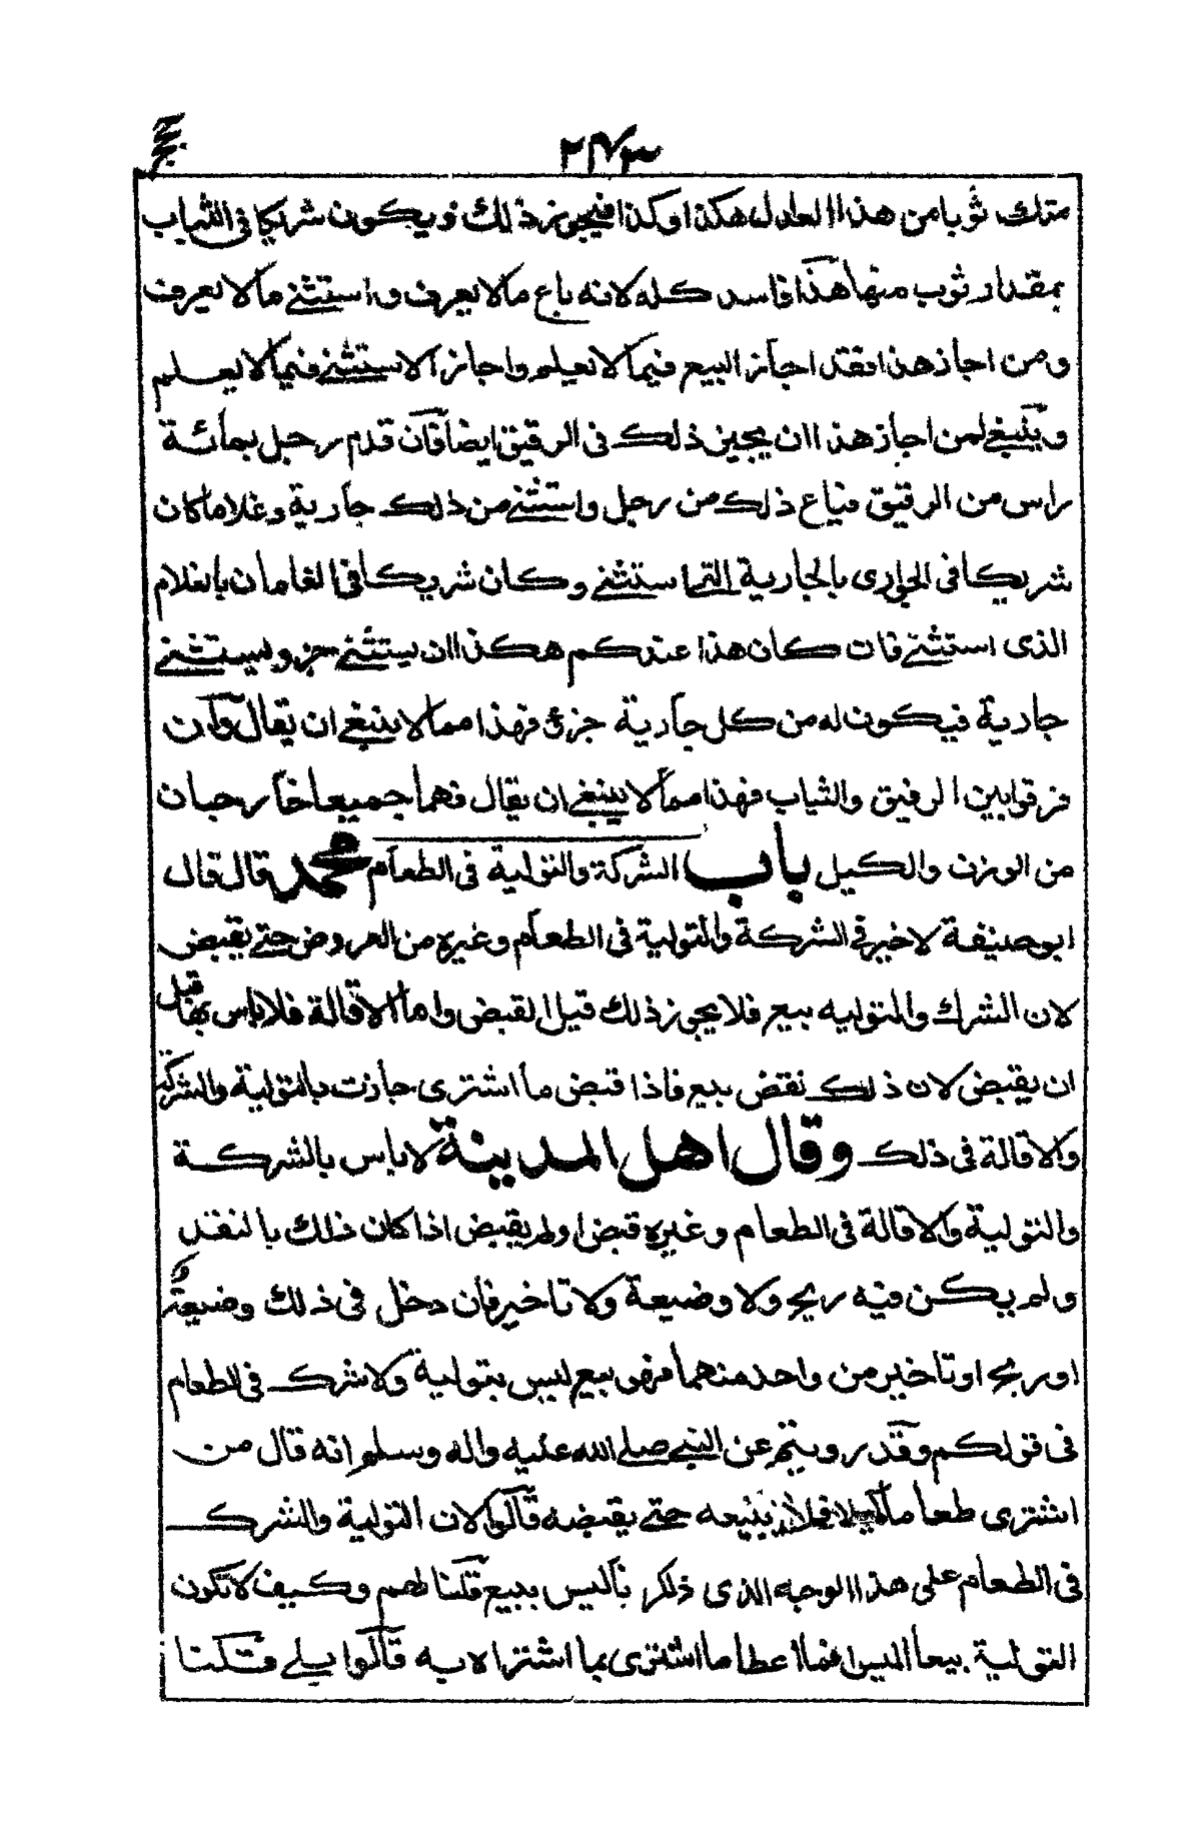 ٢٤٣
منك ثوبا من هذا العدل هكذا وكذا فيجوز ذلك ويكون شريكا فى الثياب
بمقدار ثوب منها هذا فاسد كله لانه باع ما لا يعرف واستثنى ما لا يعرف
ومن اجاز هذا فقد اجاز البيع فيما لا يعلم واجاز الاستثنى فيما لا يعلم
وينبغى لمن اجاز هذا ان يجيز ذلك فى الرقيق ايضا فان قدم رجل بمائة
راس من الرقيق فباع ذلك من رجل واستثنى من ذلك جارية وغلاما كان
شريكا فى الجوارى بالجارية التى استثنى وكان شريكا فى الغلمان بالغلام
الذى استثنى فان كان هذا عندكم هكذا ان يستثنى جزء ويستثنى
جارية فيكون له من كل جارية جزئ فهذا مما لا ينبغى ان يقال وان
فرقوا بين الرقيق والثياب فهذا مما لا ينبغى ان يقال فهما جميعا خارجان
من الوزن والكيل باب الشركة والتولية فى الطعام محمد قال قال
ابو حنيفة لا خير فى الشركة والتولية فى الطعام وغيره من العروض حتى يقبض
لان الشرك والتوليه بيع فلا يجوز ذلك قبل القبض واما الاقالة فلا باس بها قبل
ان يقبض لان ذلك نقض بيع فاذا قبض ما اشترى جازت بالتولية والشركة
والاقالة فى ذلك وقال اهل المدينة لا باس بالشركة
والتولية والاقالة فى الطعام وغيره قبض اولم يقبض اذا كان ذلك بالنقد
ولم يكن فيه ربح ولا وضيعة ولا تاخير فان دخل فى ذلك وضيعة
او ربح او تاخير من واحد منهما فهو بيع ليس بتولية ولا شرك فى الطعام
فى قولكم وقد رويتم عن النبى صلى الله عليه واله وسلم انه قال من
اشترى طعاما فلا يبيعه حتى يقبضه قالوا لان التولية والشرك
فى الطعام على هذا الوجه الذى ذكر نا ليس ببيع قلنا لهم وكيف لا تكون
التولية بيعا اليس انما اعطا ما اشترى بما اشتراه به قالوا بلى قلنا